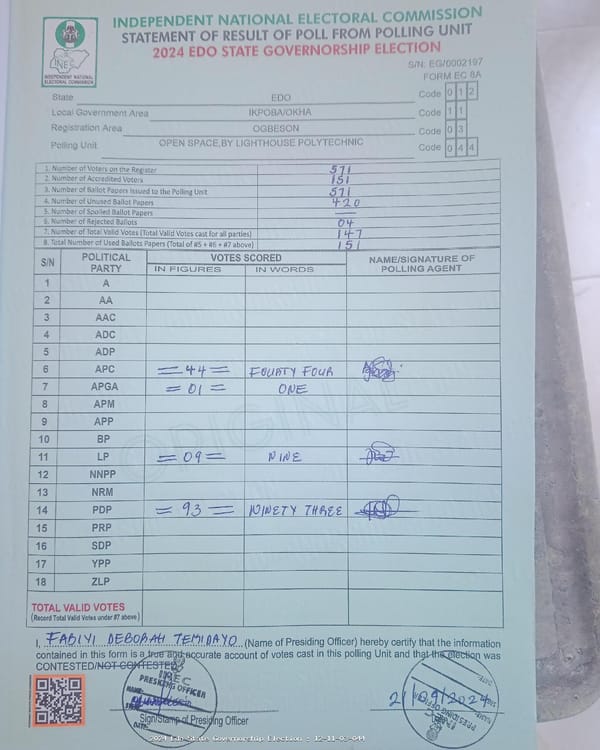 INDEPENDENT NATIONAL ELECTORAL COMMISSION
STATEMENT OF RESULT OF POLL FROM POLLING UNIT
2024 EDO STATE GOVERNORSHIP ELECTION
INEC
INDEPENDENT NATIONAL
ELECTORAL COMMISSION
S/N: EG/0002197
FORM EC 8A
State EDO Code 0 1 2
Local Government Area IKPOBA/OKHA Code 1 1
Registration Area OGBESON Code 0 3
Polling Unit OPEN SPACE,BY LIGHTHOUSE POLYTECHNIC Code 0 4 4
1. Number of Voters on the Register 571
2. Number of Accredited Voters 151
3. Number of Ballot Papers Issued to the Polling Unit 571
4. Number of Unused Ballot Papers 420
5. Number of Spoiled Ballot Papers —
6. Number of Rejected Ballots 04
7. Number of Total Valid Votes (Total Valid Votes cast for all parties) 147
8. Total Number of Used Ballots Papers (Total of #5 + #6 + #7 above) 151
S/N POLITICAL PARTY VOTES SCORED NAME/SIGNATURE OF POLLING AGENT
IN FIGURES IN WORDS
1 A
2 AA
3 AAC
4 ADC
5 ADP
6 APC =44= FOURTY FOUR
7 APGA =01= ONE
8 APM
9 APP
10 BP
11 LP =09= NINE
12 NNPP
13 NRM
14 PDP =93= NINETY THREE
15 PRP
16 SDP
17 YPP
18 ZLP
ORIGINAL
TOTAL VALID VOTES
(Record Total Valid Votes under #7 above)
I, FABIYI DEBORAH TEMIDAYO (Name of Presiding Officer) hereby certify that the information
contained in this form is a true and accurate account of votes cast in this polling Unit and that the election was
CONTESTED/NOT CONTESTED.
INEC
PRESIDING OFFICER
NAME:
DATE:
21/09/2024
PRESIDING OFFICER
Sign/Stamp of Presiding Officer
2024 Edo State Governorship Election - 12-11-03-044